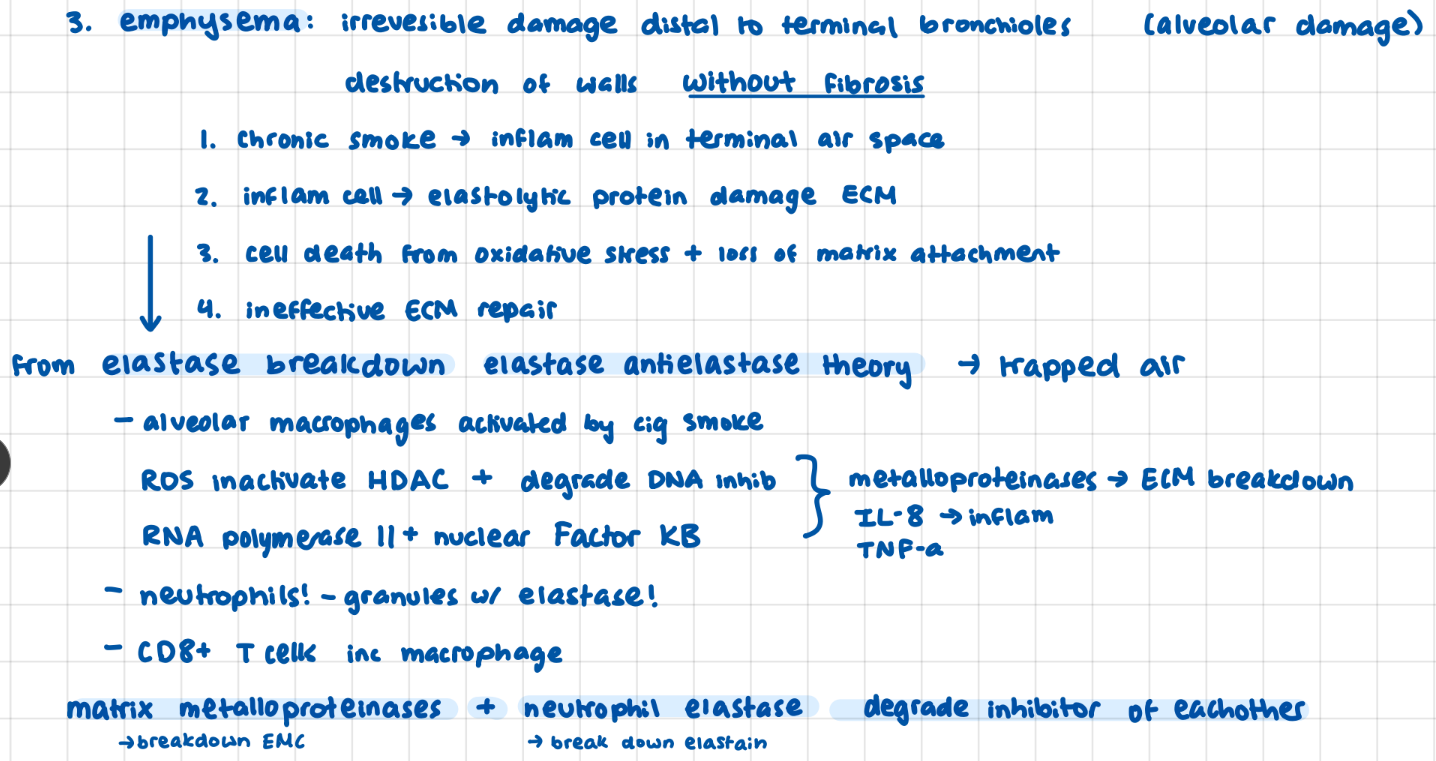 3. emphysema: irrevesible damage distal to terminal bronchioles (alveolar damage)
destruction of walls without fibrosis
1. chronic smoke → inflam cell in terminal air space
2. inflam cell → elastolytic protein damage ECM
3. cell death from oxidative stress + loss of matrix attachment
4. ineffective ECM repair
from elastase breakdown elastase antielastase theory → trapped air
- alveolar macrophages activated by cig smoke
ROS inactivate HDAC + degrade DNA inhib } metalloproteinases → ECM breakdown
IL-8 → inflam
RNA polymerase II + nuclear Factor KB
TNF-a
- neutrophils! - granules w/ elastase!
- CD8+ T cells inc macrophage
matrix metalloproteinases + neutrophil elastase degrade inhibitor of eachother
→ breakdown EMC → break down elastain